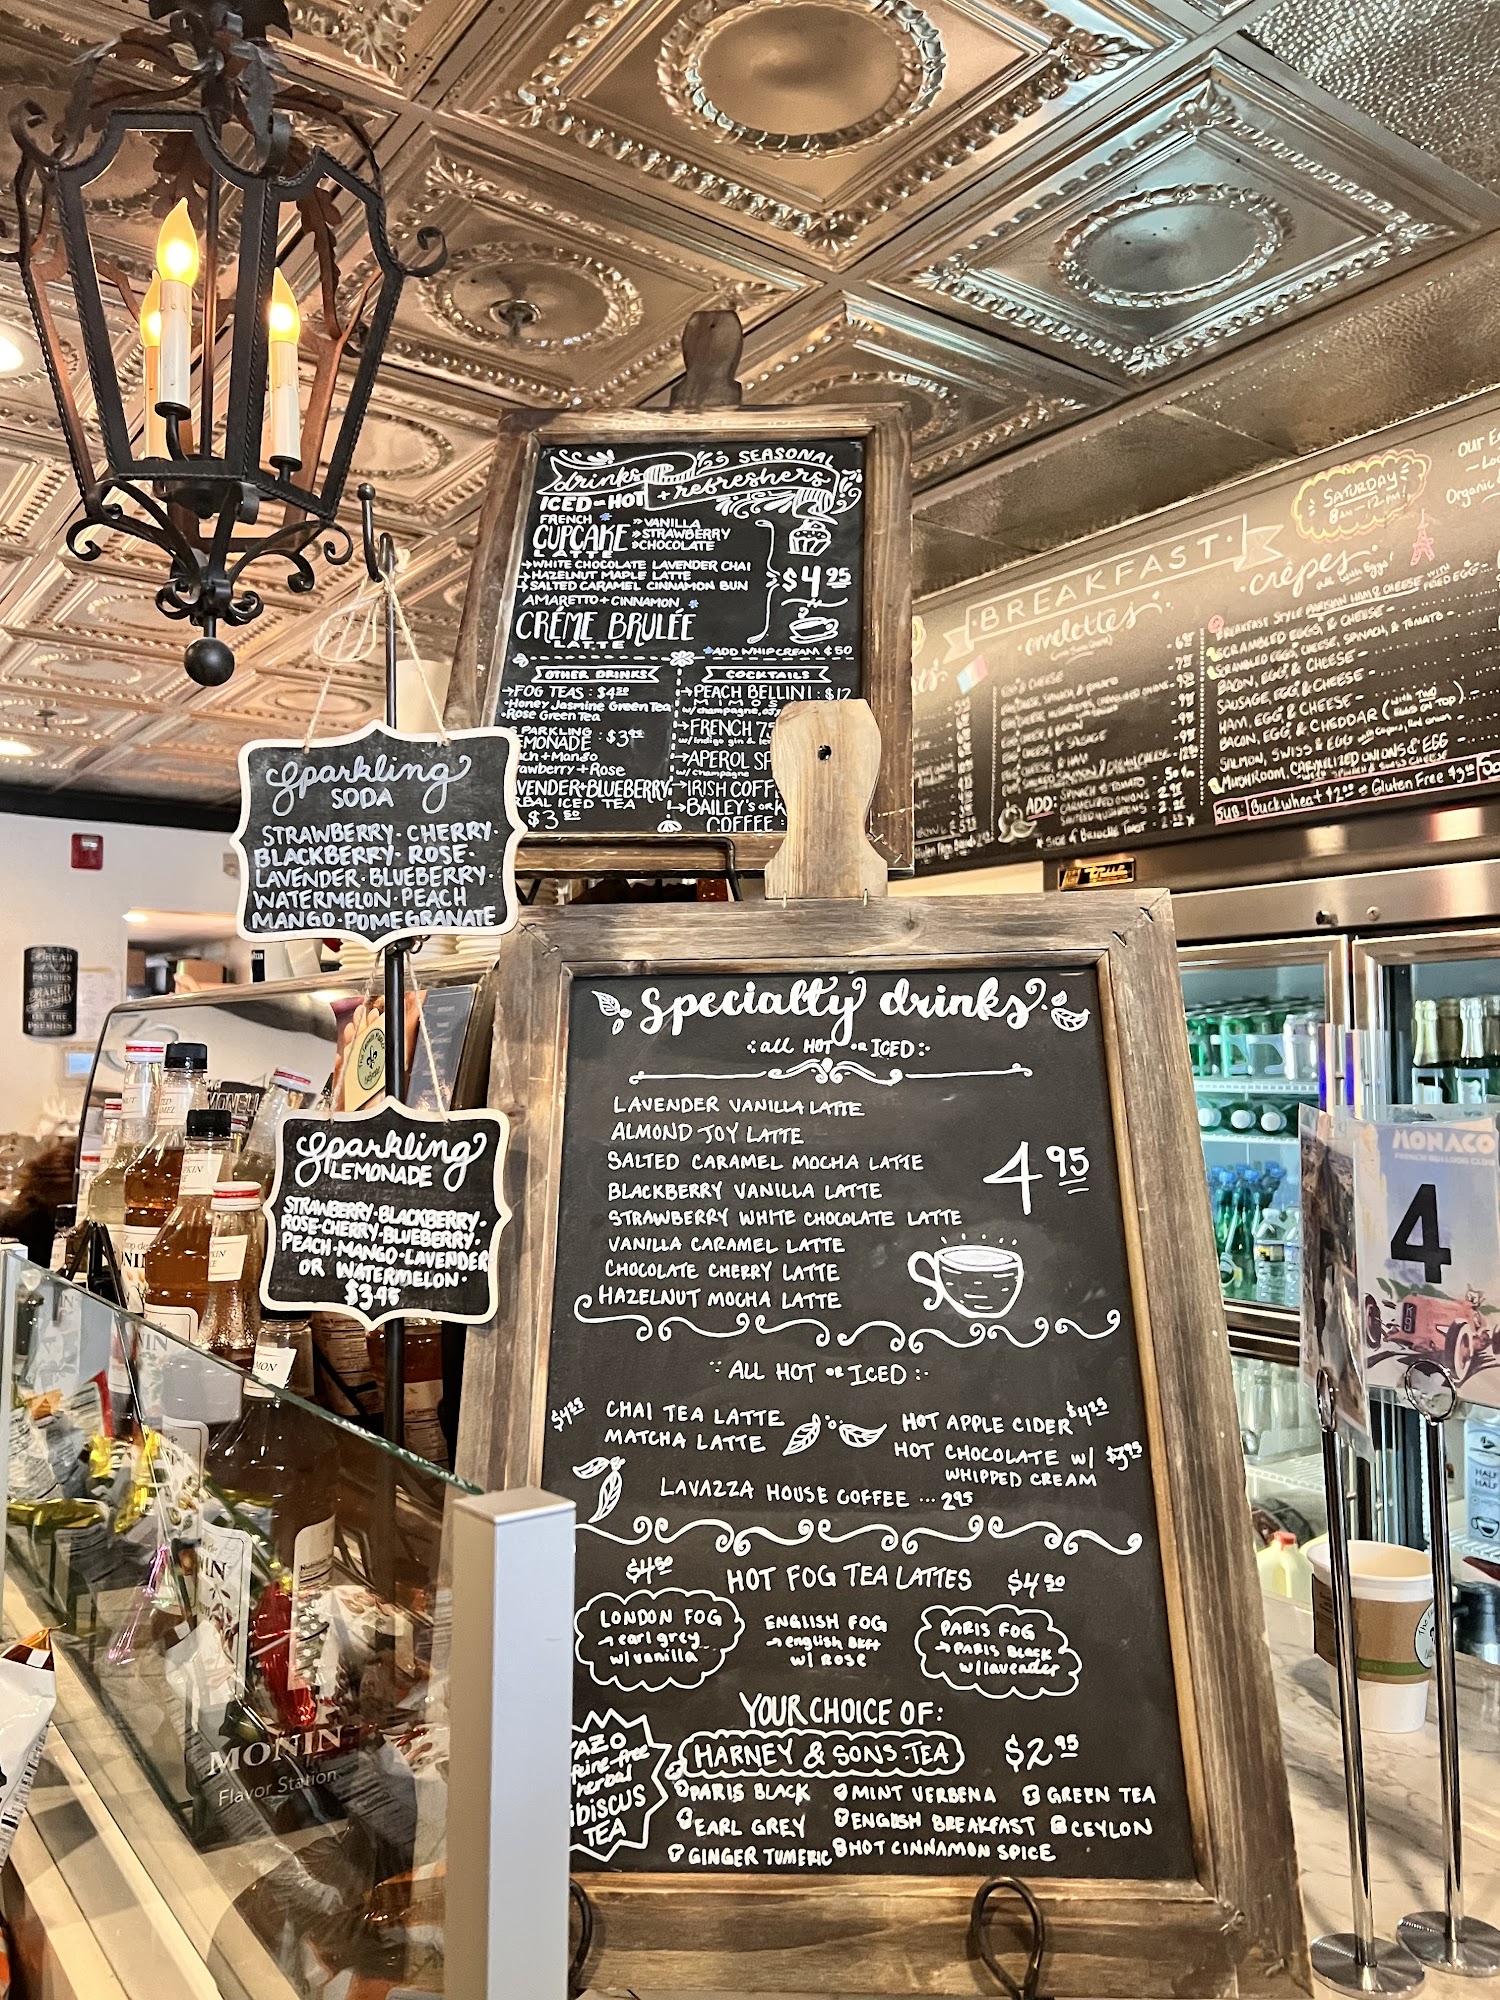 SEASONAL
drinks + refreshers
ICED or HOT
FRENCH
CUPCAKE
LATTE
» VANILLA
» STRAWBERRY
» CHOCOLATE
→WHITE CHOCOLATE LAVENDER CHAI
→HAZELNUT MAPLE LATTE
→SALTED CARAMEL CINNAMON BUN
$4 95
AMARETTO + CINNAMON
CRÉME BRULÉE
LATTE
*ADD WHIP CREAM ¢50
OTHER DRINKS
→FOG TEAS: $4 50
•Honey Jasmine Green Tea
•Rose Green Tea
COCKTAILS
→PEACH BELLINI: $12
MIMOS
w/ champagne,
→FRENCH 75
w/ indigo gin &
→APEROL SP
w/ champagne
→IRISH COFF
→BAILEY'S or K
COFFEE
Sparkling
SODA
STRAWBERRY · CHERRY ·
BLACKBERRY · ROSE ·
LAVENDER · BLUEBERRY ·
WATERMELON · PEACH
MANGO · POMEGRANATE
Sparkling
LEMONADE
STRAWBERRY · BLACKBERRY ·
ROSE · CHERRY · BLUEBERRY ·
PEACH · MANGO · LAVENDER
OR WATERMELON ·
$3.95
Specialty drinks
all HOT or ICED
LAVENDER VANILLA LATTE
ALMOND JOY LATTE
SALTED CARAMEL MOCHA LATTE
BLACKBERRY VANILLA LATTE
STRAWBERRY WHITE CHOCOLATE LATTE
VANILLA CARAMEL LATTE
CHOCOLATE CHERRY LATTE
HAZELNUT MOCHA LATTE
4 95
ALL HOT or ICED
$4 25 CHAI TEA LATTE
MATCHA LATTE
HOT APPLE CIDER $4 25
HOT CHOCOLATE w/ $3 95
WHIPPED CREAM
LAVAZZA HOUSE COFFEE ... 2 95
$4 50 HOT FOG TEA LATTES $4 50
LONDON FOG
→ earl grey
w/ vanilla
ENGLISH FOG
→ english BKFT
w/ ROSE
PARIS FOG
→ PARIS BLACK
w/ lavender
YOUR CHOICE OF:
HARNEY & SONS TEA $2 95
PARIS BLACK MINT VERBENA GREEN TEA
EARL GREY ENGLISH BREAKFAST CEYLON
GINGER TUMERIC HOT CINNAMON SPICE
AZO
herbal
IBISCUS
TEA
BREAKFAST
omelettes
SATURDAY
8AM - 12 PM!
crêpes
all with Eggs!
SCRAMBLED EGGS & CHEESE
SCRAMBLED EGGS, CHEESE, SPINACH, & TOMATO
BACON, EGG, & CHEESE
SAUSAGE, EGG & CHEESE
HAM, EGG & CHEESE
BACON, EGG, & CHEDDAR (with TWO EGGS ON TOP)
SALMON, SWISS & EGG
MUSHROOM, CARMELIZED ONIONS & EGG
SUB: Buckwheat $2 Gluten Free $3
ADD: SPINACH & TOMATO
true
MONACO
FRENCH BULLDOG CLUB
4
HALF
HALF
BREAD
PASTRIES
BAKED
FRESHLY
ON THE
PREMISES
MONIN
Flavor Station